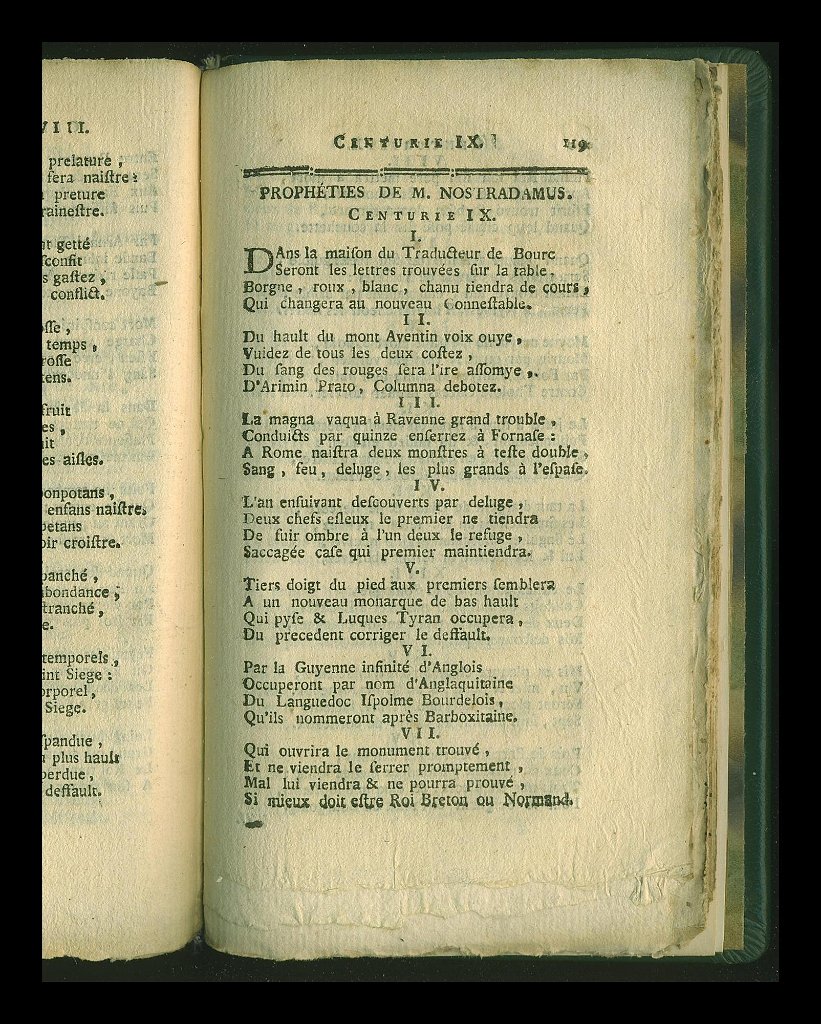 VIII.
prelature,
ſera naiſtre:
preture
raineſtre.
nt getté
ſconfit
s gaſtez,
conflict.
oſſe,
temps,
roſſe
tens.
fruit
es,
ait
es aiſles.
bonpotans,
enfans naiſtre,
petans
oir croiſtre.
panché,
bondance;
tranché,
e.
temporels,
int Siege:
orporel,
Siege.
ſpandue,
plus hault
perdue,
deffault.
CENTURIE IX. 119
PROPHÉTIES DE M. NOSTRADAMUS.
CENTURIE IX.
I.
DAns la maiſon du Traducteur de Bourc
Seront les lettres trouvées ſur la table,
Borgne, roux, blanc, chanu tiendra de cours,
Qui changera au nouveau Conneſtable.
II.
Du hault du mont Aventin voix ouye,
Vuidez de tous les deux coſtez,
Du ſang des rouges ſera l'ire aſſomye,
D'Arimin Prato, Columna debotez.
III.
La magna vaqua à Ravenne grand trouble,
Conduicts par quinze enſerrez à Fornaſe:
A Rome naiſtra deux monſtres à teſte double,
Sang, feu, deluge, les plus grands à l'eſpaſe.
IV.
L'an enſuivant deſcouverts par deluge,
Deux chefs eſleux le premier ne tiendra
De fuir ombre à l'un deux le refuge,
Saccagée caſe qui premier maintiendra.
V.
Tiers doigt du pied aux premiers ſemblera
A un nouveau monarque de bas hault
Qui pyſe & Luques Tyran occupera,
Du precedent corriger le deffault.
VI.
Par la Guyenne infinité d'Anglois
Occuperont par nom d'Anglaquitaine
Du Languedoc Iſpolme Bourdelois,
Qu'ils nommeront après Barboxitaine.
VII.
Qui ouvrira le monument trouvé,
Et ne viendra le ſerrer promptement,
Mal lui viendra & ne pourra prouvé,
Si mieux doit eſtre Roi Breton ou Normand.